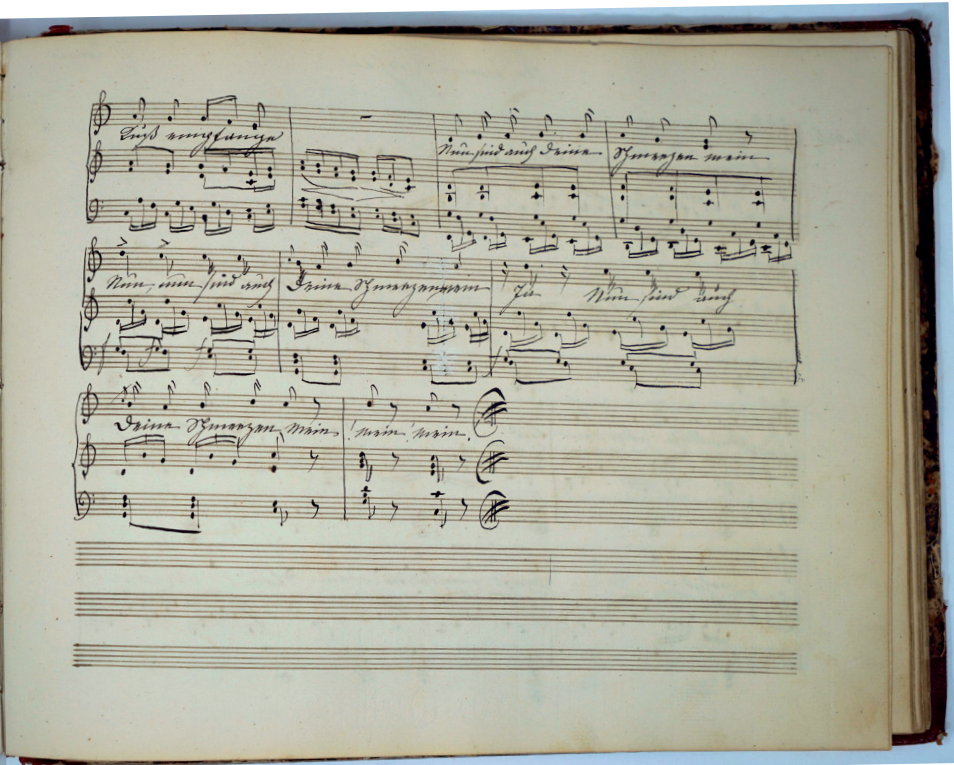 Kuß empfange Nun sind auch deine Schmerzen mein
Nun, nun sind auch deine Schmerzen mein Ja Nun sind auch
deine Schmerzen mein! mein! mein.